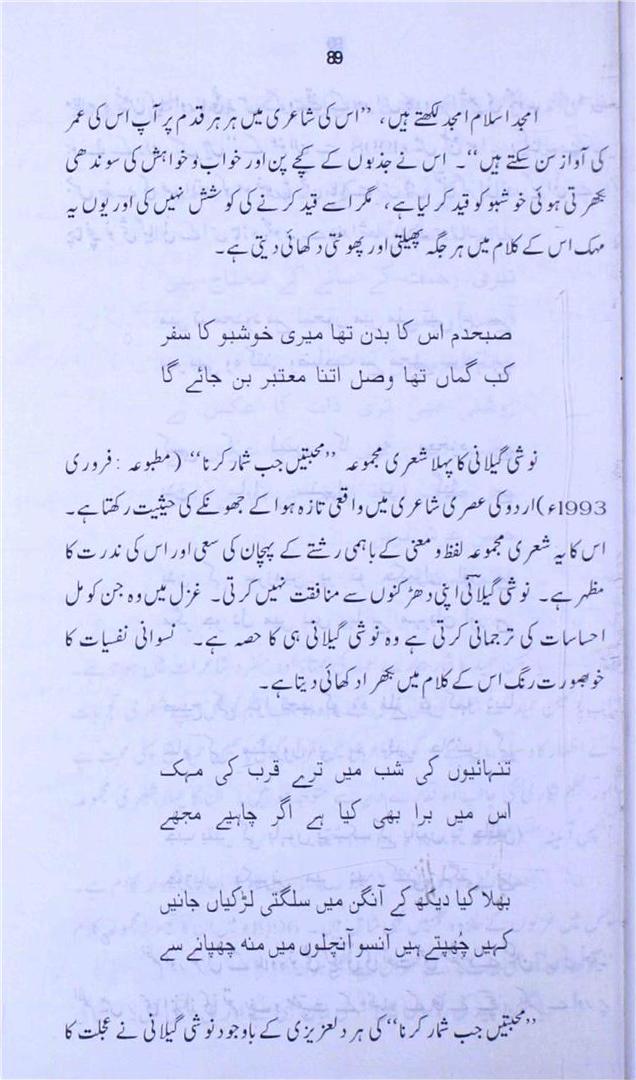 89
امجد اسلام امجد لکھتے ہیں، ”اس کی شاعری میں ہر ہر قدم پر آپ اس کی عمر
کی آواز سن سکتے ہیں“۔ اس نے جذبوں کے کچے پن اور خواب و خواہش کی سوندھی
بکھرتی ہوئی خوشبو کو قید کر لیا ہے، مگر اسے قید کرنے کی کوشش نہیں کی اور یوں یہ
مہک اس کے کلام میں ہر جگہ پھیلتی اور پھوٹتی دکھائی دیتی ہے۔
صبحدم اس کا بدن تھا میری خوشبو کا سفر
کب گماں تھا وصل اتنا معتبر بن جائے گا
نوشی گیلانی کا پہلا شعری مجموعہ ”محبتیں جب شمار کرنا“ (مطبوعہ: فروری
1993ء) اردو کی عصری شاعری میں واقعی تازہ ہوا کے جھونکے کی حیثیت رکھتا ہے۔
اس کا یہ شعری مجموعہ لفظ و معنی کے باہمی رشتے کے پہچان کی سعی اور اس کی ندرت کا
مظہر ہے۔ نوشی گیلانی اپنی دھڑکنوں سے منافقت نہیں کرتی۔ غزل میں وہ جن کومل
احساسات کی ترجمانی کرتی ہے وہ نوشی گیلانی ہی کا حصہ ہے۔ نسوانی نفسیات کا
خوبصورت رنگ اس کے کلام میں بکھرا دکھائی دیتا ہے۔
تنہائیوں کی شب میں ترے قرب کی مہک
اس میں برا بھی کیا ہے اگر چاہیے مجھے
بھلا کیا دیکھ کے آنگن میں سلگتی لڑکیاں جانیں
کہیں چھپتے ہیں آنسو آنچلوں میں منہ چھپانے سے
”محبتیں جب شمار کرنا“ کی ہر دلعزیزی کے باوجود نوشی گیلانی نے عجلت کا